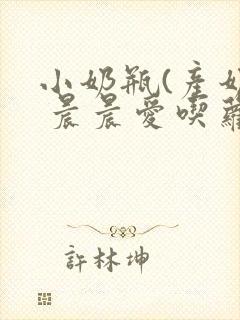 小奶瓶(產奶
晨晨愛喫蘿
許林坤